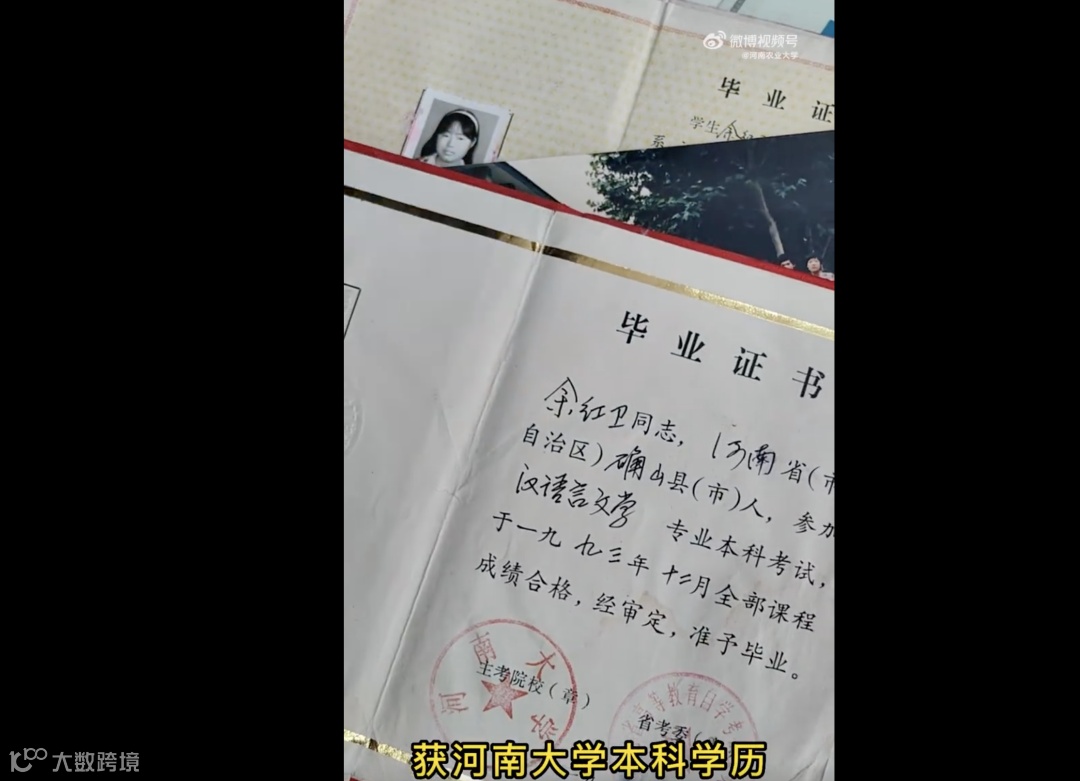 微博视频号
@河南农业大学
毕业证
学生余红
系
毕业证书
余红卫同志，河南省(市
自治区)确山县(市)人，参加
汉语言文学 专业本科考试，
于一九九三年十二月全部课程
成绩合格，经审定，准予毕业。
河南大学
主考院校(章)
高等教育自学考
省考委(
获河南大学本科学历
大数跨境